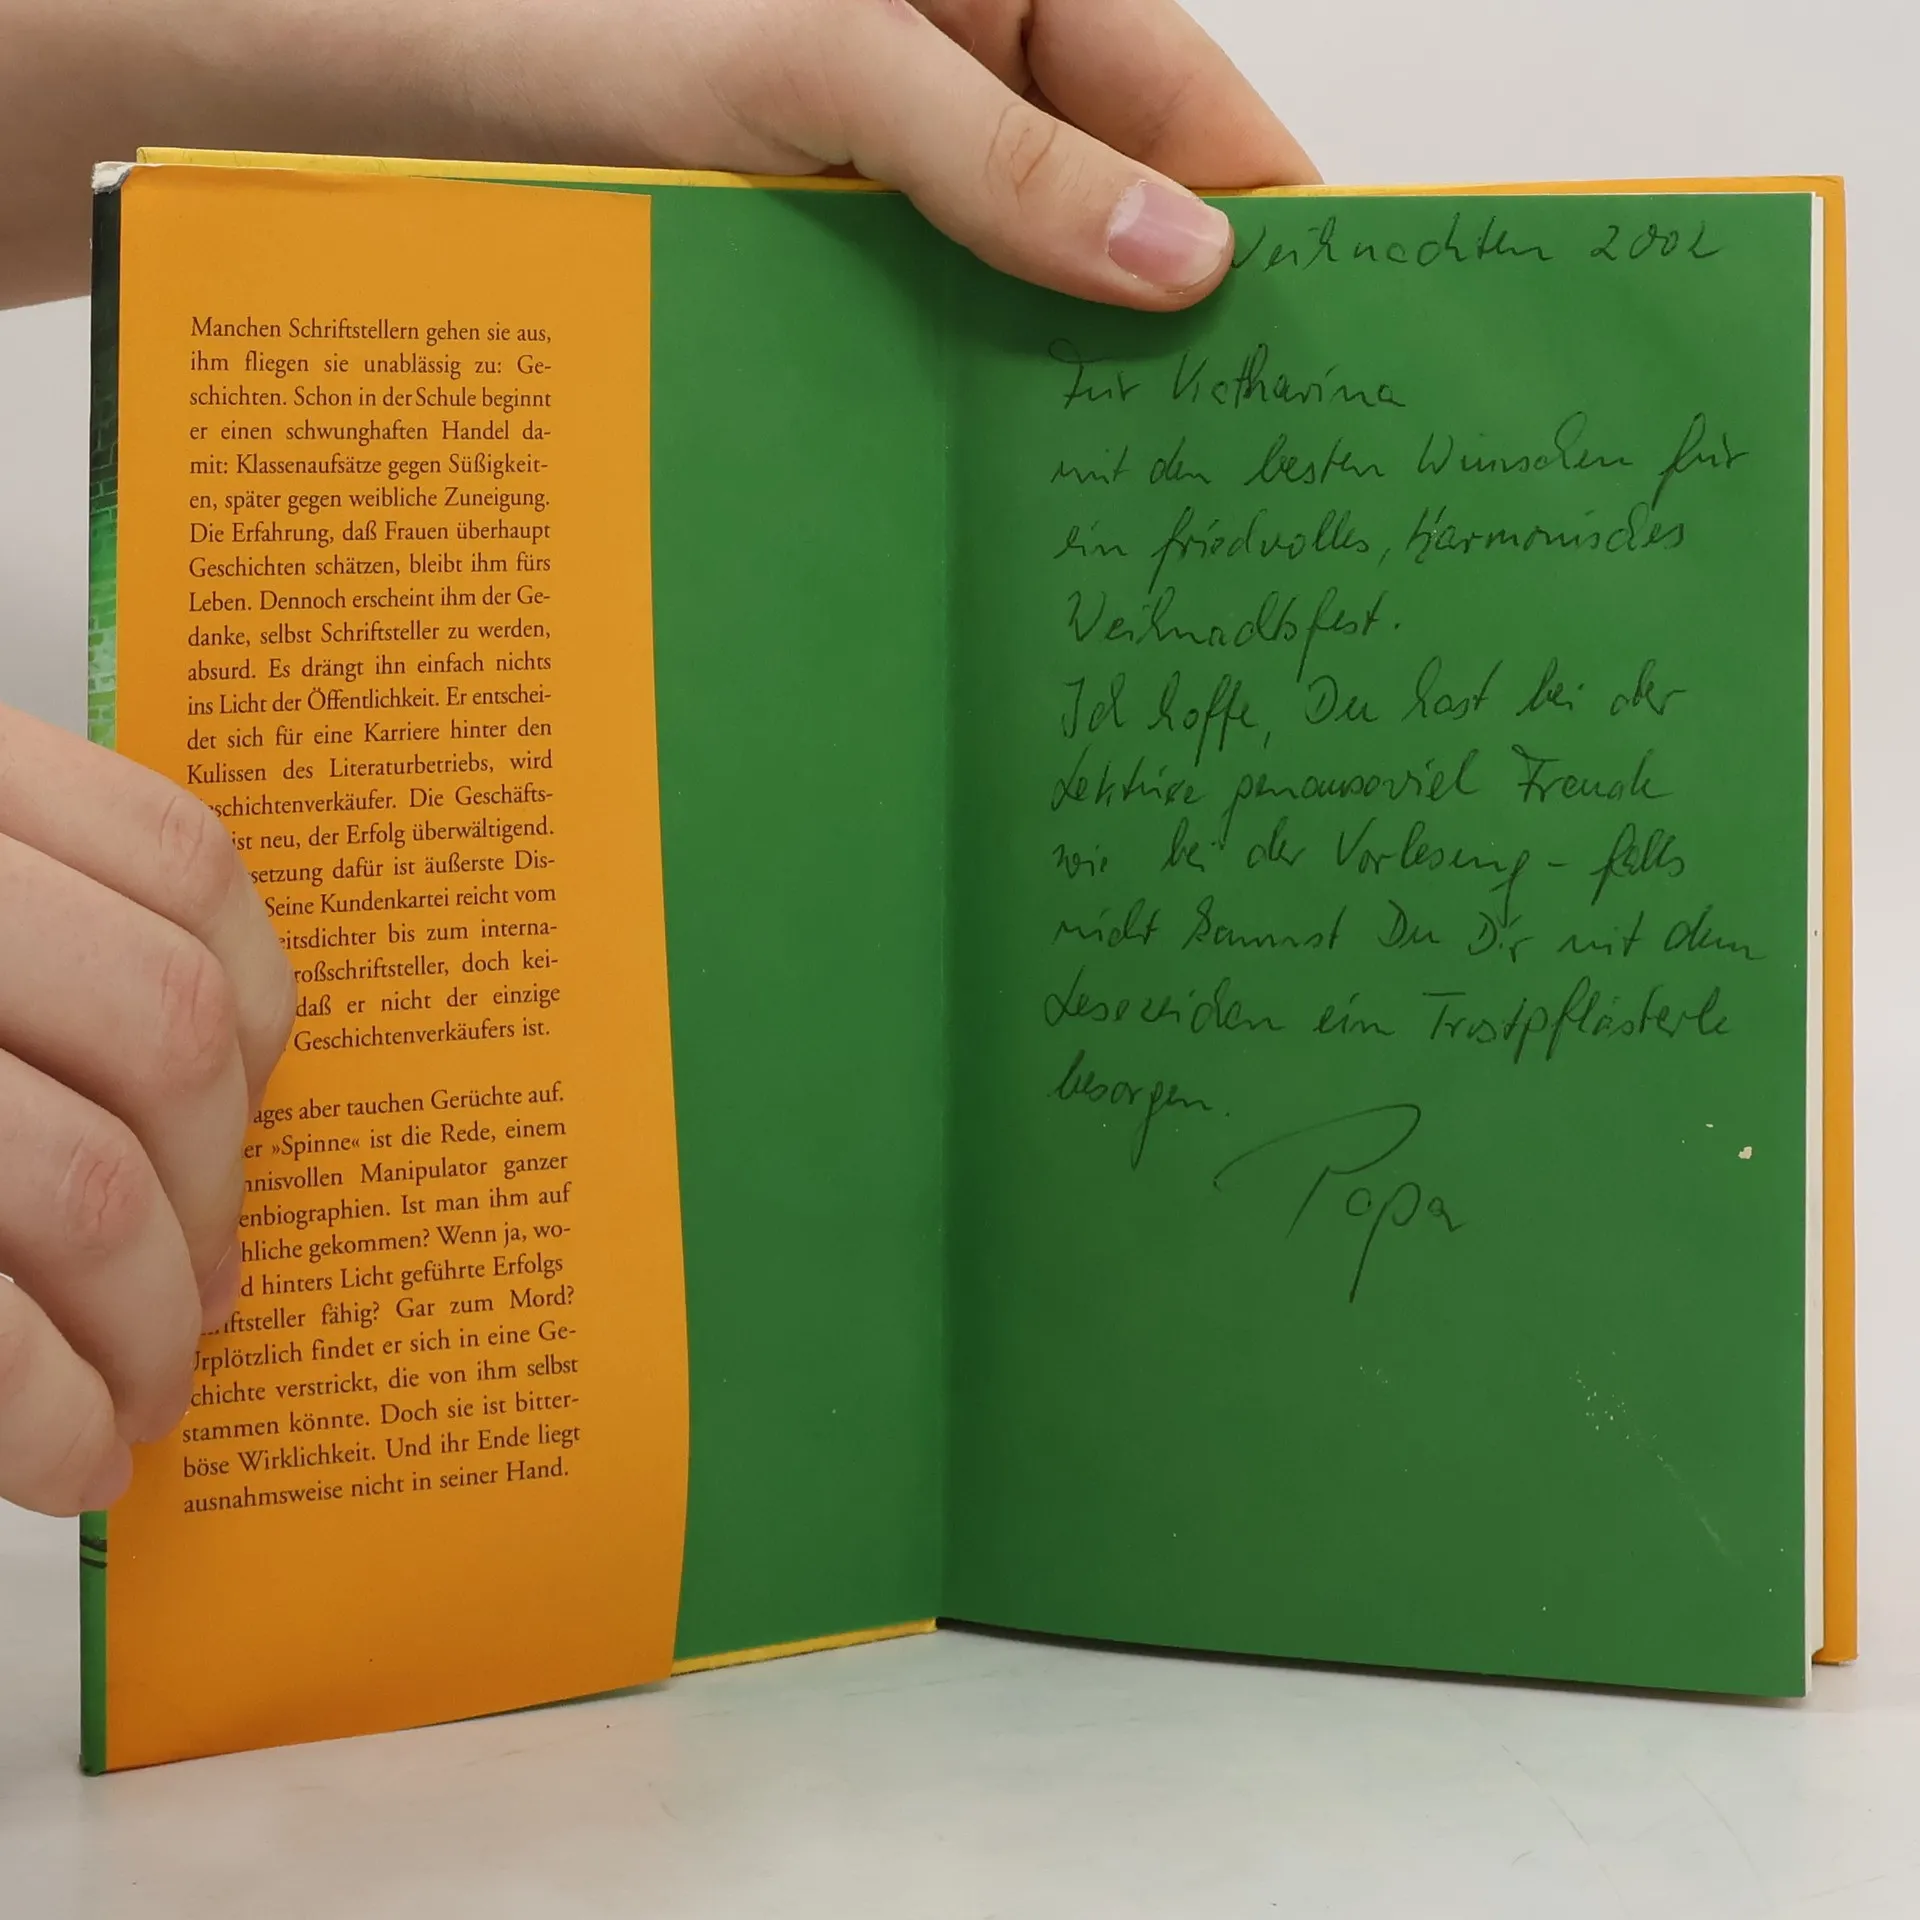 Manchen Schriftstellern gehen sie aus,
ihm fliegen sie unablässig zu: Ge-
schichten. Schon in der Schule beginnt
er einen schwunghaften Handel da-
mit: Klassenaufsätze gegen Süßigkeit-
en, später gegen weibliche Zuneigung.
Die Erfahrung, daß Frauen überhaupt
Geschichten schätzen, bleibt ihm fürs
Leben. Dennoch erscheint ihm der Ge-
danke, selbst Schriftsteller zu werden,
absurd. Es drängt ihn einfach nichts
ins Licht der Öffentlichkeit. Er entschei-
det sich für eine Karriere hinter den
Kulissen des Literaturbetriebs, wird
schichtenverkäufer. Die Geschäfts-
ist neu, der Erfolg überwältigend.
setzung dafür ist äußerste Dis-
Seine Kundenkartei reicht vom
eitsdichter bis zum interna-
roßschriftsteller, doch kei-
daß er nicht der einzige
Geschichtenverkäufers ist.
ages aber tauchen Gerüchte auf.
er »Spinne« ist die Rede, einem
nnisvollen Manipulator ganzer
enbiographien. Ist man ihm auf
hliche gekommen? Wenn ja, wo-
d hinters Licht geführte Erfolgs
iftsteller fähig? Gar zum Mord?
Urplötzlich findet er sich in eine Ge-
chichte verstrickt, die von ihm selbst
stammen könnte. Doch sie ist bitter-
böse Wirklichkeit. Und ihr Ende liegt
ausnahmsweise nicht in seiner Hand.
Weihnachten 2002
Für Katharina
mit den besten Wünschen für
ein friedvolles, harmonisches
Weihnachtsfest.
Ich hoffe, Du hast bei der
Lektüre genausoviel Freude
wie bei der Vorlesung - falls
nicht kannst Du Dir mit dem
Lesezeichen ein Trostpflästerle
besorgen.
Papa